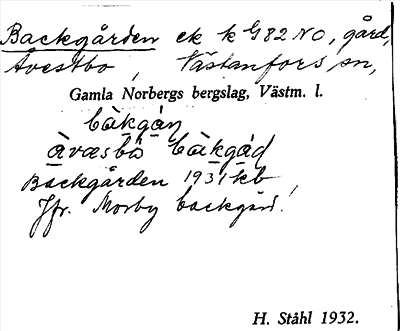 Backgården ek k G82 NO, gård,
Avestbo, Västanfors sn,
Gamla Norbergs bergslag, Västm. l.
bàkgàṇ
àvæsbò bàkgàd
Backgården 1931 kb,
Jfr. Morby backgård!
H. Ståhl 1932.